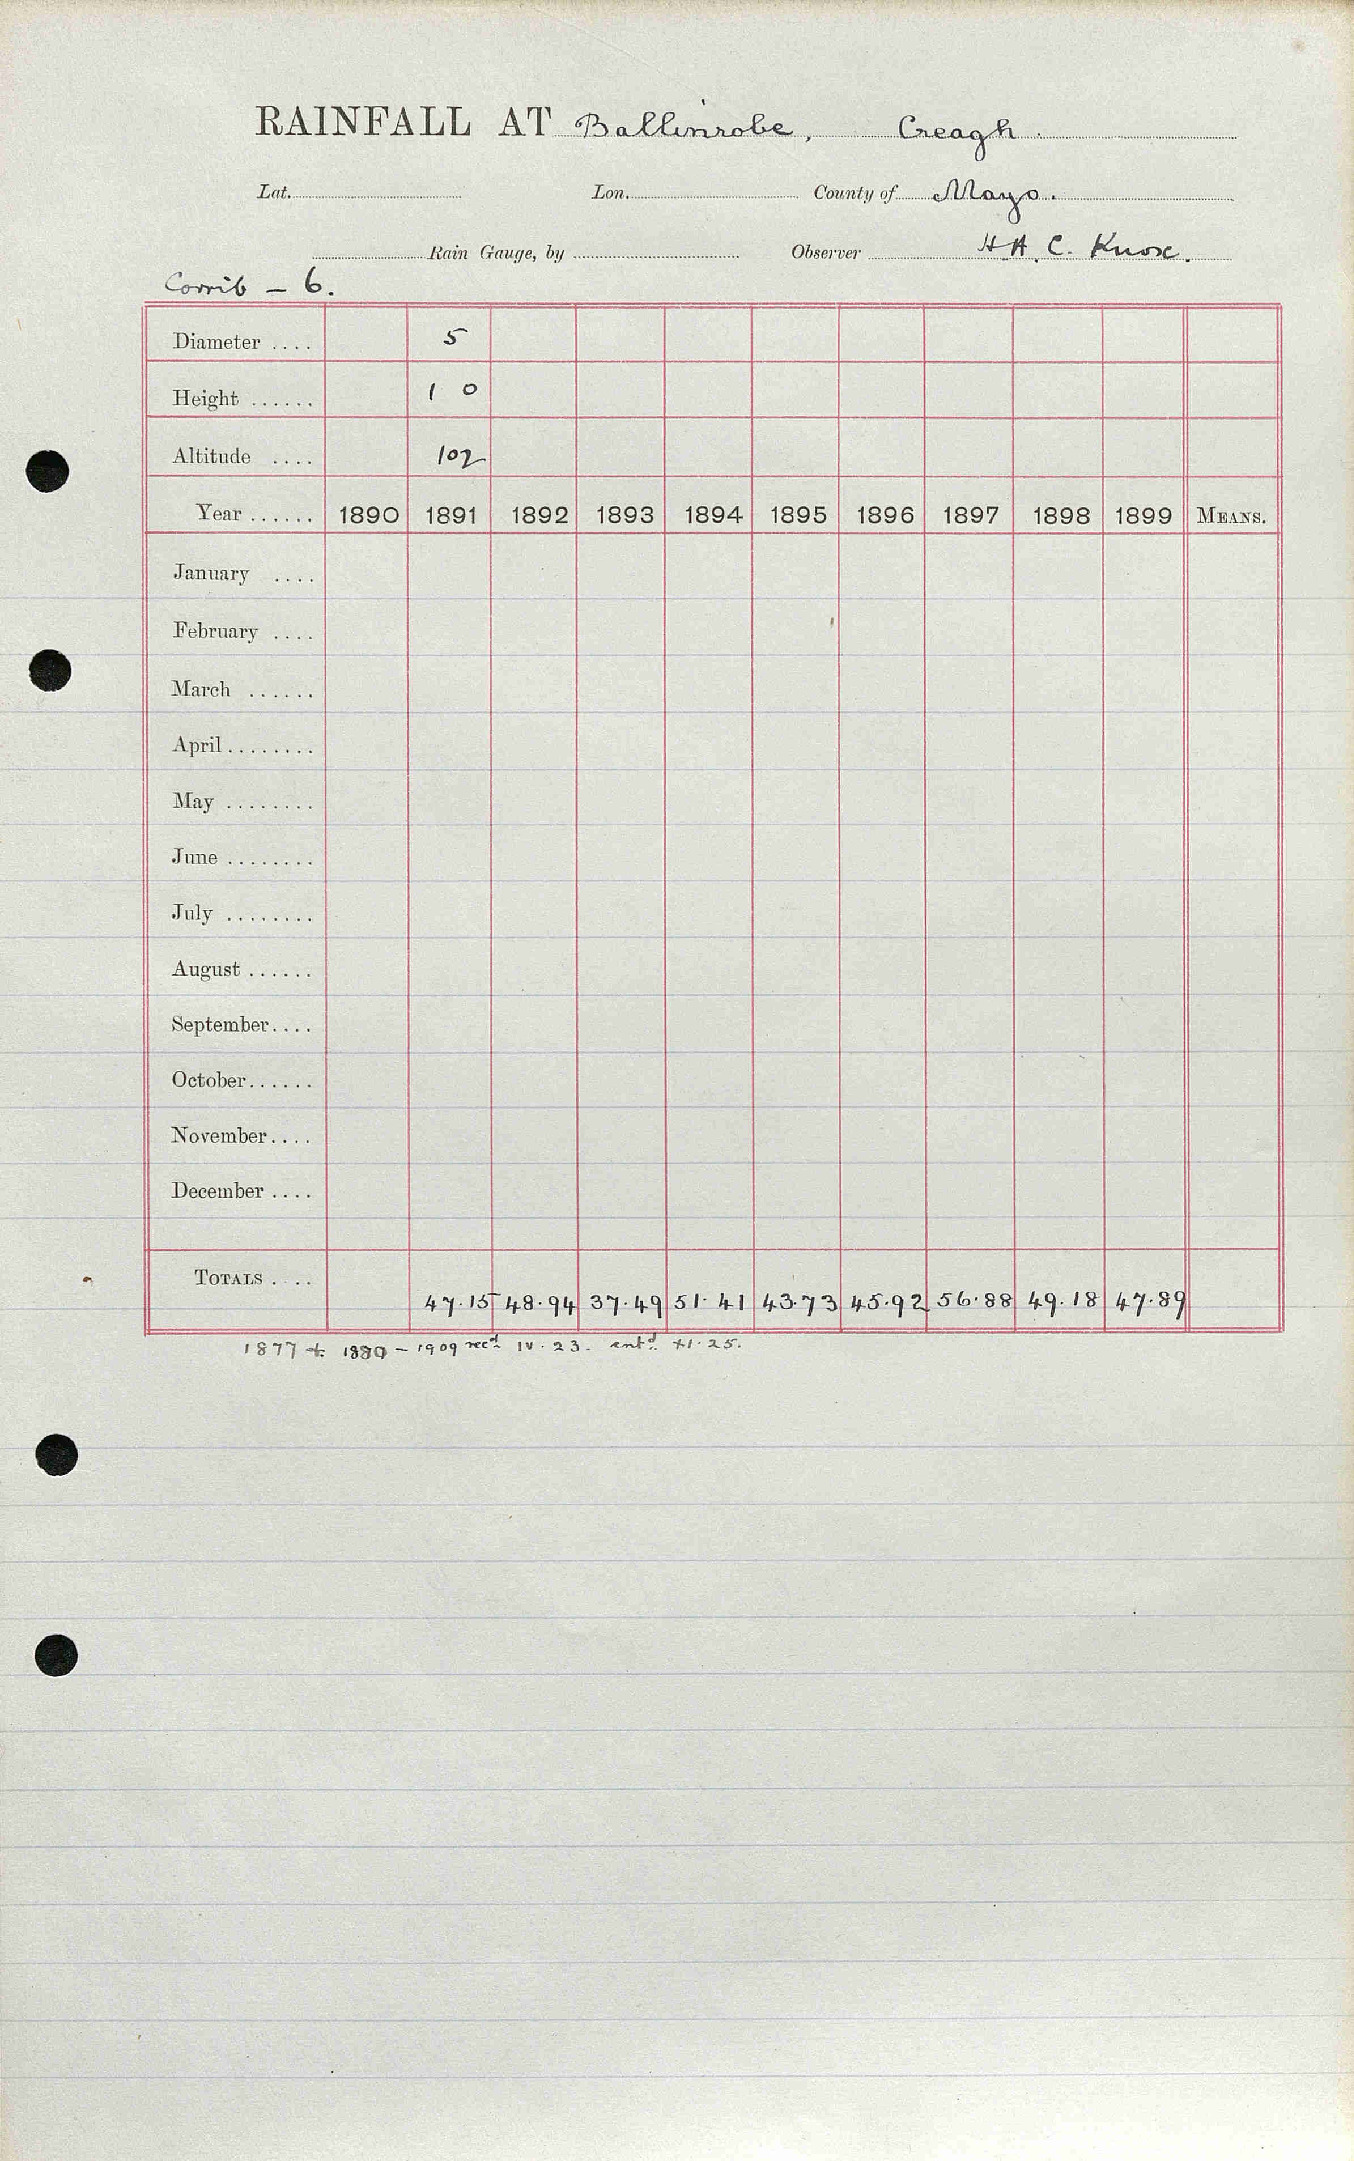 RAINFALL AT Ballinrobe, Creagh.
Lat. Lon. County of Mayo.
Rain Gauge, by Observer H A. C. Knox.
Corrib – 6.
Diameter .... 5
Height ...... 1 0
Altitude .... 102
Year ...... 1890 1891 1892 1893 1894 1895 1896 1897 1898 1899 MEANS.
January ....
February ....
March ......
April ........
May ........
June ........
July ........
August ......
September....
October......
November....
December ....
TOTALS .... 47.15 48.94 37.49 51.41 43.73 45.92 56.88 49.18 47.89
1877 – 1909 recd IV.23. entd 25.